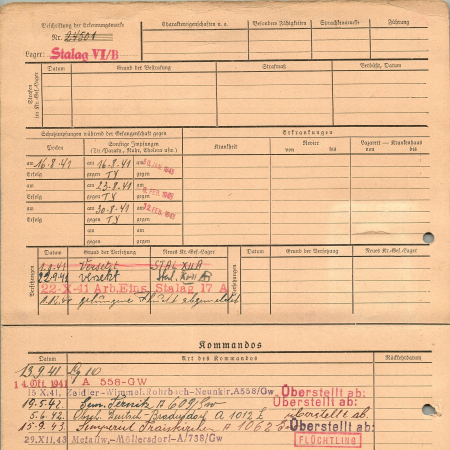 Beschriftung der Erkennungsmarke
Nr. 27501
Lager: Stalag VI/B
Charaktereigenschaften u. a.
Besondere Fähigkeiten
Sprachkenntnisse
Führung
Strafen im Kr.-Gef.-Lager
Datum
Grund der Bestrafung
Strafmaß
Verbüßt, Datum
Schutzimpfungen während der Gefangenschaft gegen
Erkrankungen
Pocken
Sonstige Impfungen
(Ty.-Paraty., Ruhr, Cholera usw.)
Krankheit
Revier
von bis
Lazarett — Krankenhaus
von bis
am 16.8.41
Erfolg
am 16.8.41
gegen TY
am
gegen
am
Erfolg
am 23.8.41
gegen TY
am FEB. 1943
gegen
am
Erfolg
am 30.8.41
gegen TY
am 22. FEB. 1943
gegen
Versetzungen
Datum
Grund der Versetzung
Neues Kr.-Gef.-Lager
Versetzungen
Datum
Grund der Versetzung
Neues Kr.-Gef.-Lager
Versetzt
STAL XII A
22.9.41 versetzt
22-X-41 Arb.Eins. Stalag 17 A
Kommandos
Datum
Art des Kommandos
Rückkehrdatum
13.9.41
14. Okt. 1941 A 558-GW
15.X.41 Zeidler-Wimmel, Rohrbach-Neunkir, A558/Gw
Überstellt ab:
19.5.42 Sem. Ternitz A 609/Gw
Überstellt ab:
5.6.42 A 1012
überstellt ab
15.9.43 Semperit Traiskirchen A 1062
Überstellt ab:
29.XII.43 Metallw.-Möllersdorf-A/738/Gw
FLÜCHTLING